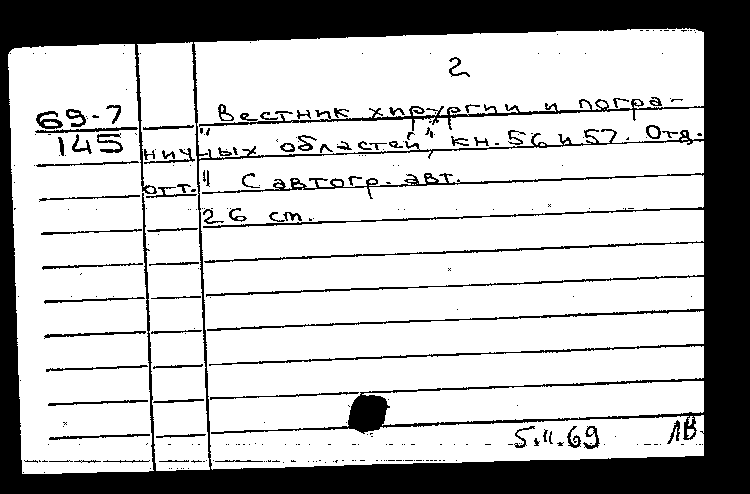 2
69-7 "Вестник хирургии и погра-
145 ничных областей", кн. 56 и 57. Отд.
отт." С автогр. авт.
26 см.
5.II.69 ЛВ